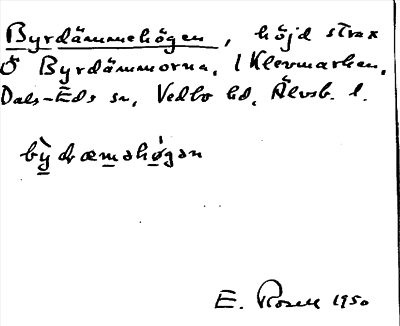 Byrdämmehögen, höjd strax
Ö Byrdämmorna, i Klevmarken,
Dals-Eds sn, Vedbo hd, Älvsb. l.
bỳdræməhø̀gən
E. Rosell 1950